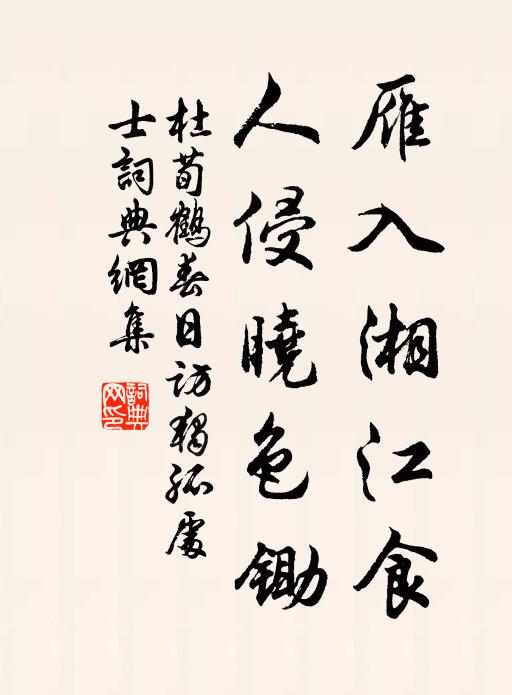 雁入湘江食
人侵曉色鋤
杜荀鶴春日訪獨孤處
士詞典網集
詞典
网印